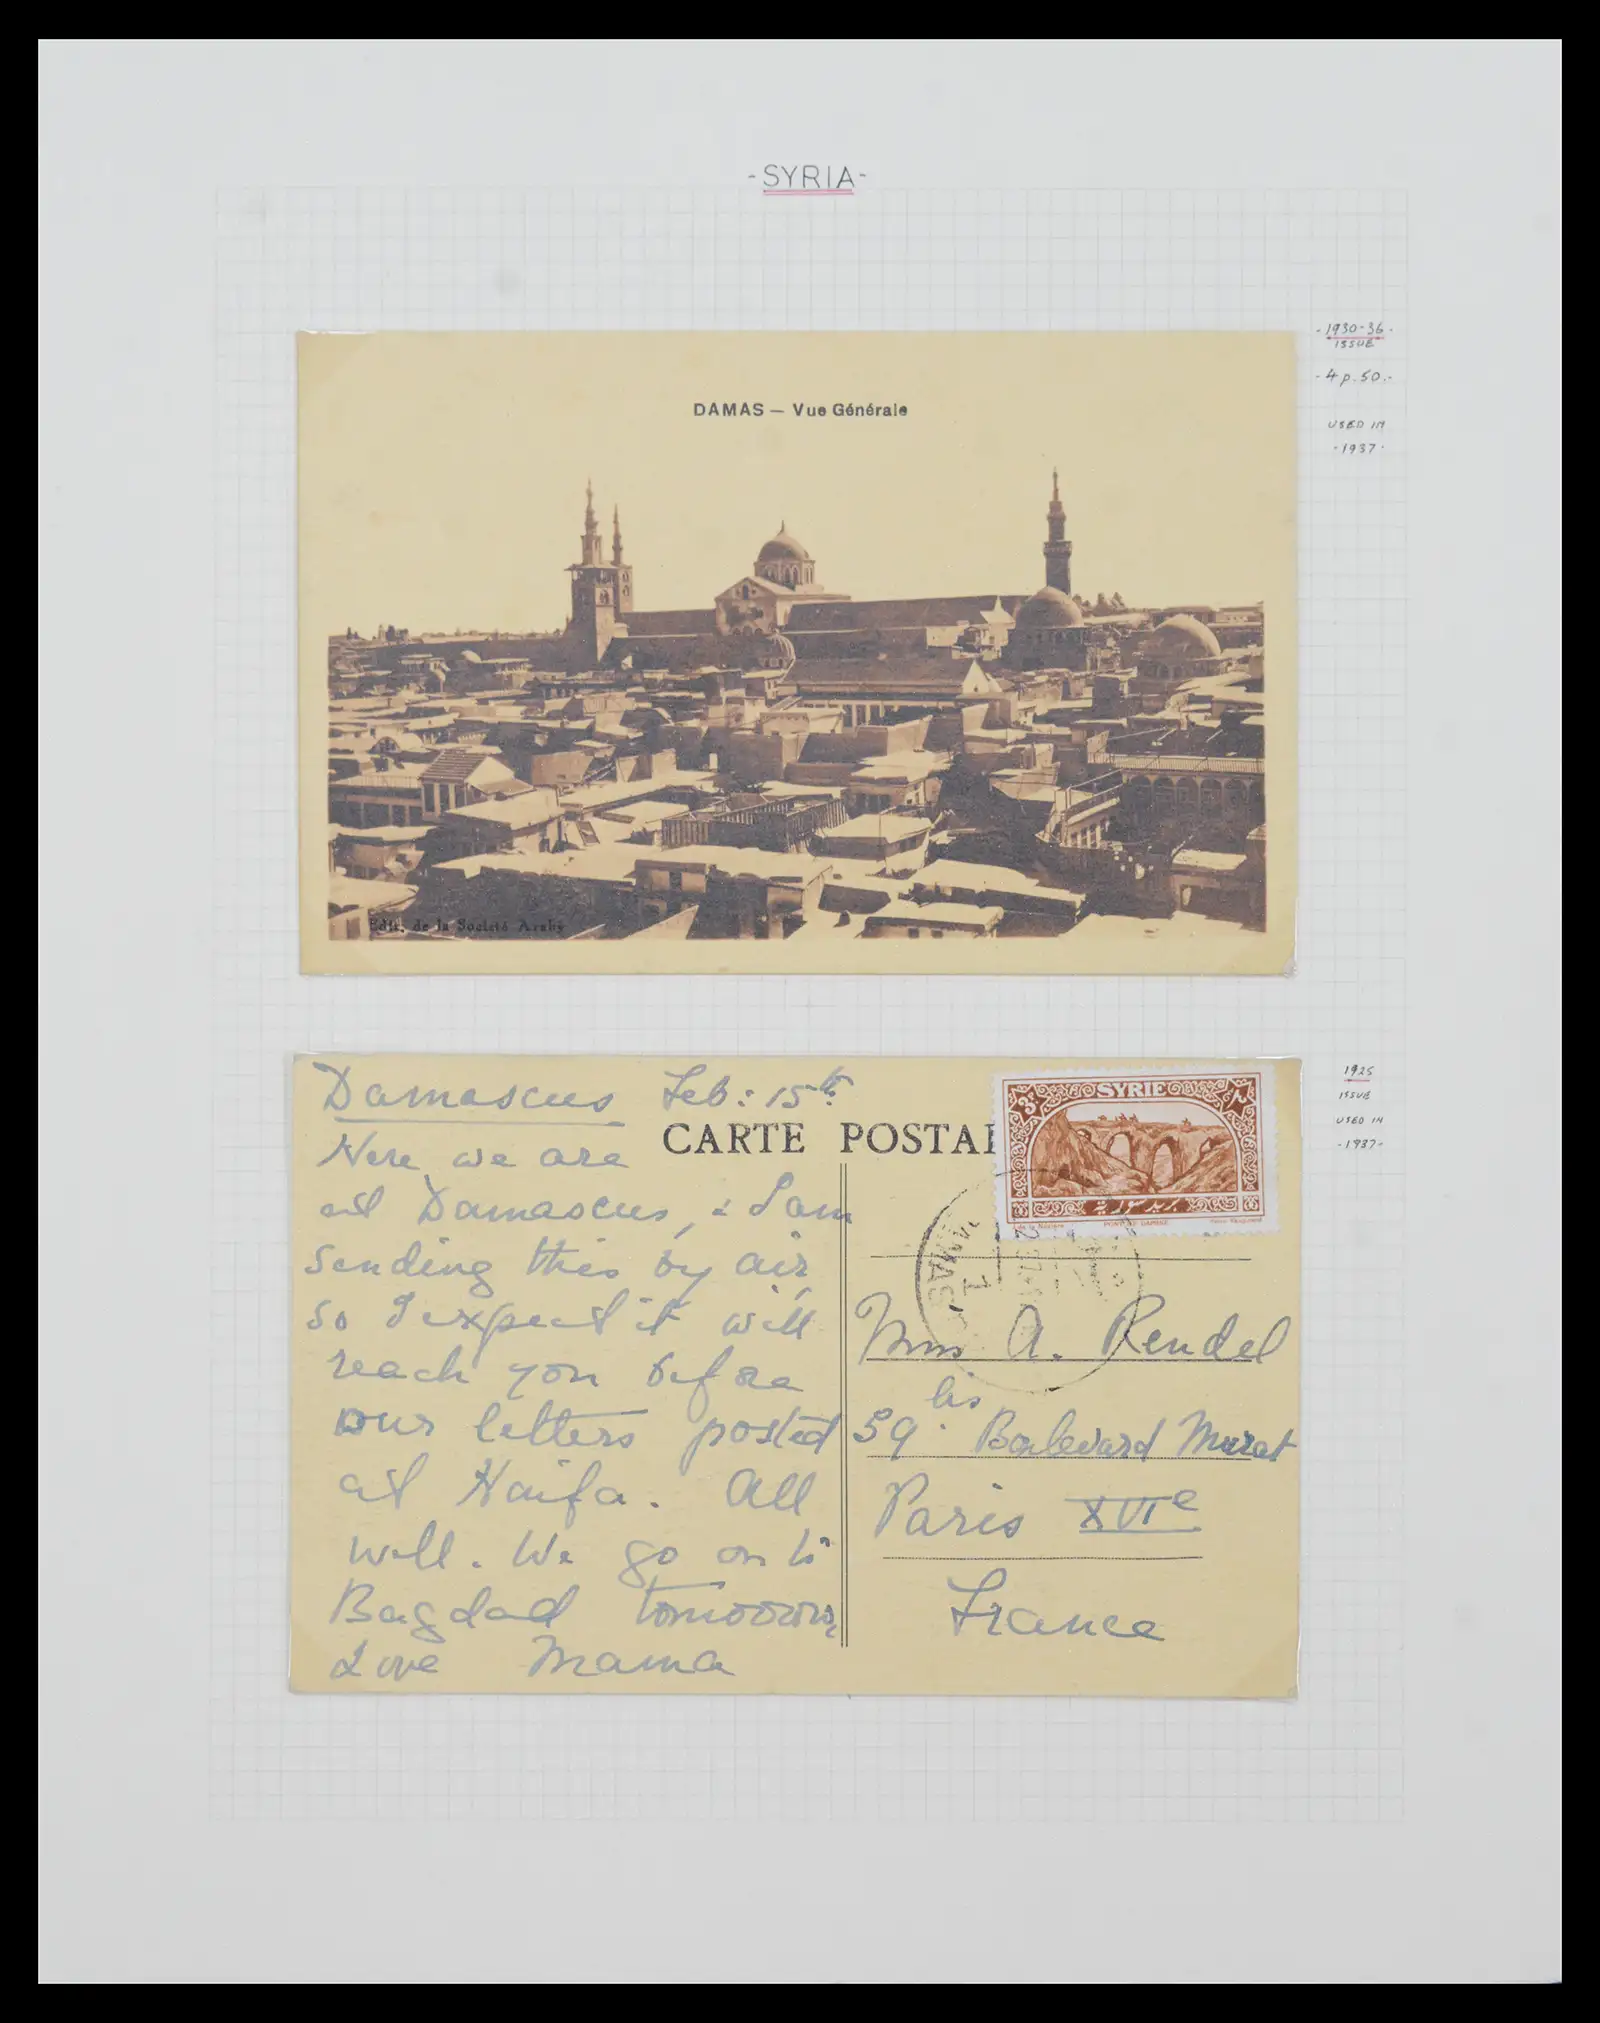 -SYRIA-
-1930-36-
ISSUE
-4p.50.-
USED IN
-1937-
DAMAS — Vue Générale
Edit. de la Société Araby
1925
ISSUE
USED IN
-1937-
Damascus Feb: 15th
CARTE POSTAL
Here we are
at Damascus, & I am
sending this by air,
so I expect it will
reach you before
our letters posted
at Haifa. All
well. We go on to
Bagdad tomorrow,
Love Mama
SYRIE
3P
٣
بريد سورية
PONT DE DAPHNÉ
DAMAS
1
A. Rendel
bis
59. Boulevard Murat
Paris XVIe
France